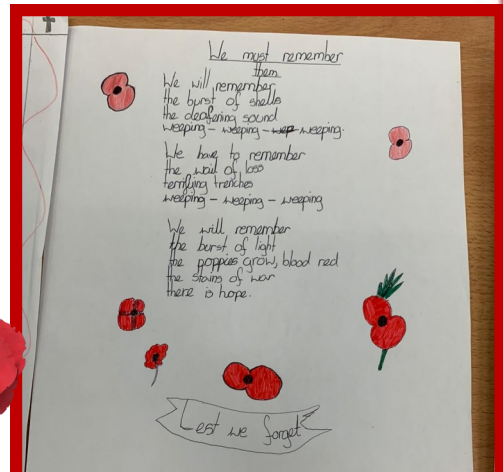 We must remember
them
We will remember
the burst of shells
the deafening sound
weeping - weeping - wep weeping.
We have to remember
the wail of loss
terrifying trenches
weeping - weeping - weeping
We will remember
the burst of light
the poppies grow, blood red
the stains of war
there is hope.
Lest we forget